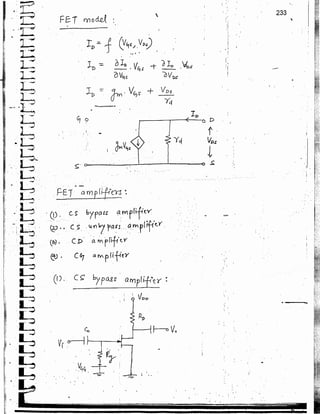 233
FET model :
I_D = f (V_GS, V_DS)
I_D = ∂I_D/∂V_GS . V_GS + ∂I_D/∂V_DS . V_DS
I_D = g_m . V_GS + V_DS/r_d
G I_D D
g_m V_GS r_d V_DS
S S
FET amplifiers :
(1). CS bypass amplifier
(2). CS unbypass amplifier
(3). CD amplifier
(4). CG amplifier
(1). CS bypass amplifier :
V_DD
R_D
C_c V_o
V_i
R_g
V_GG